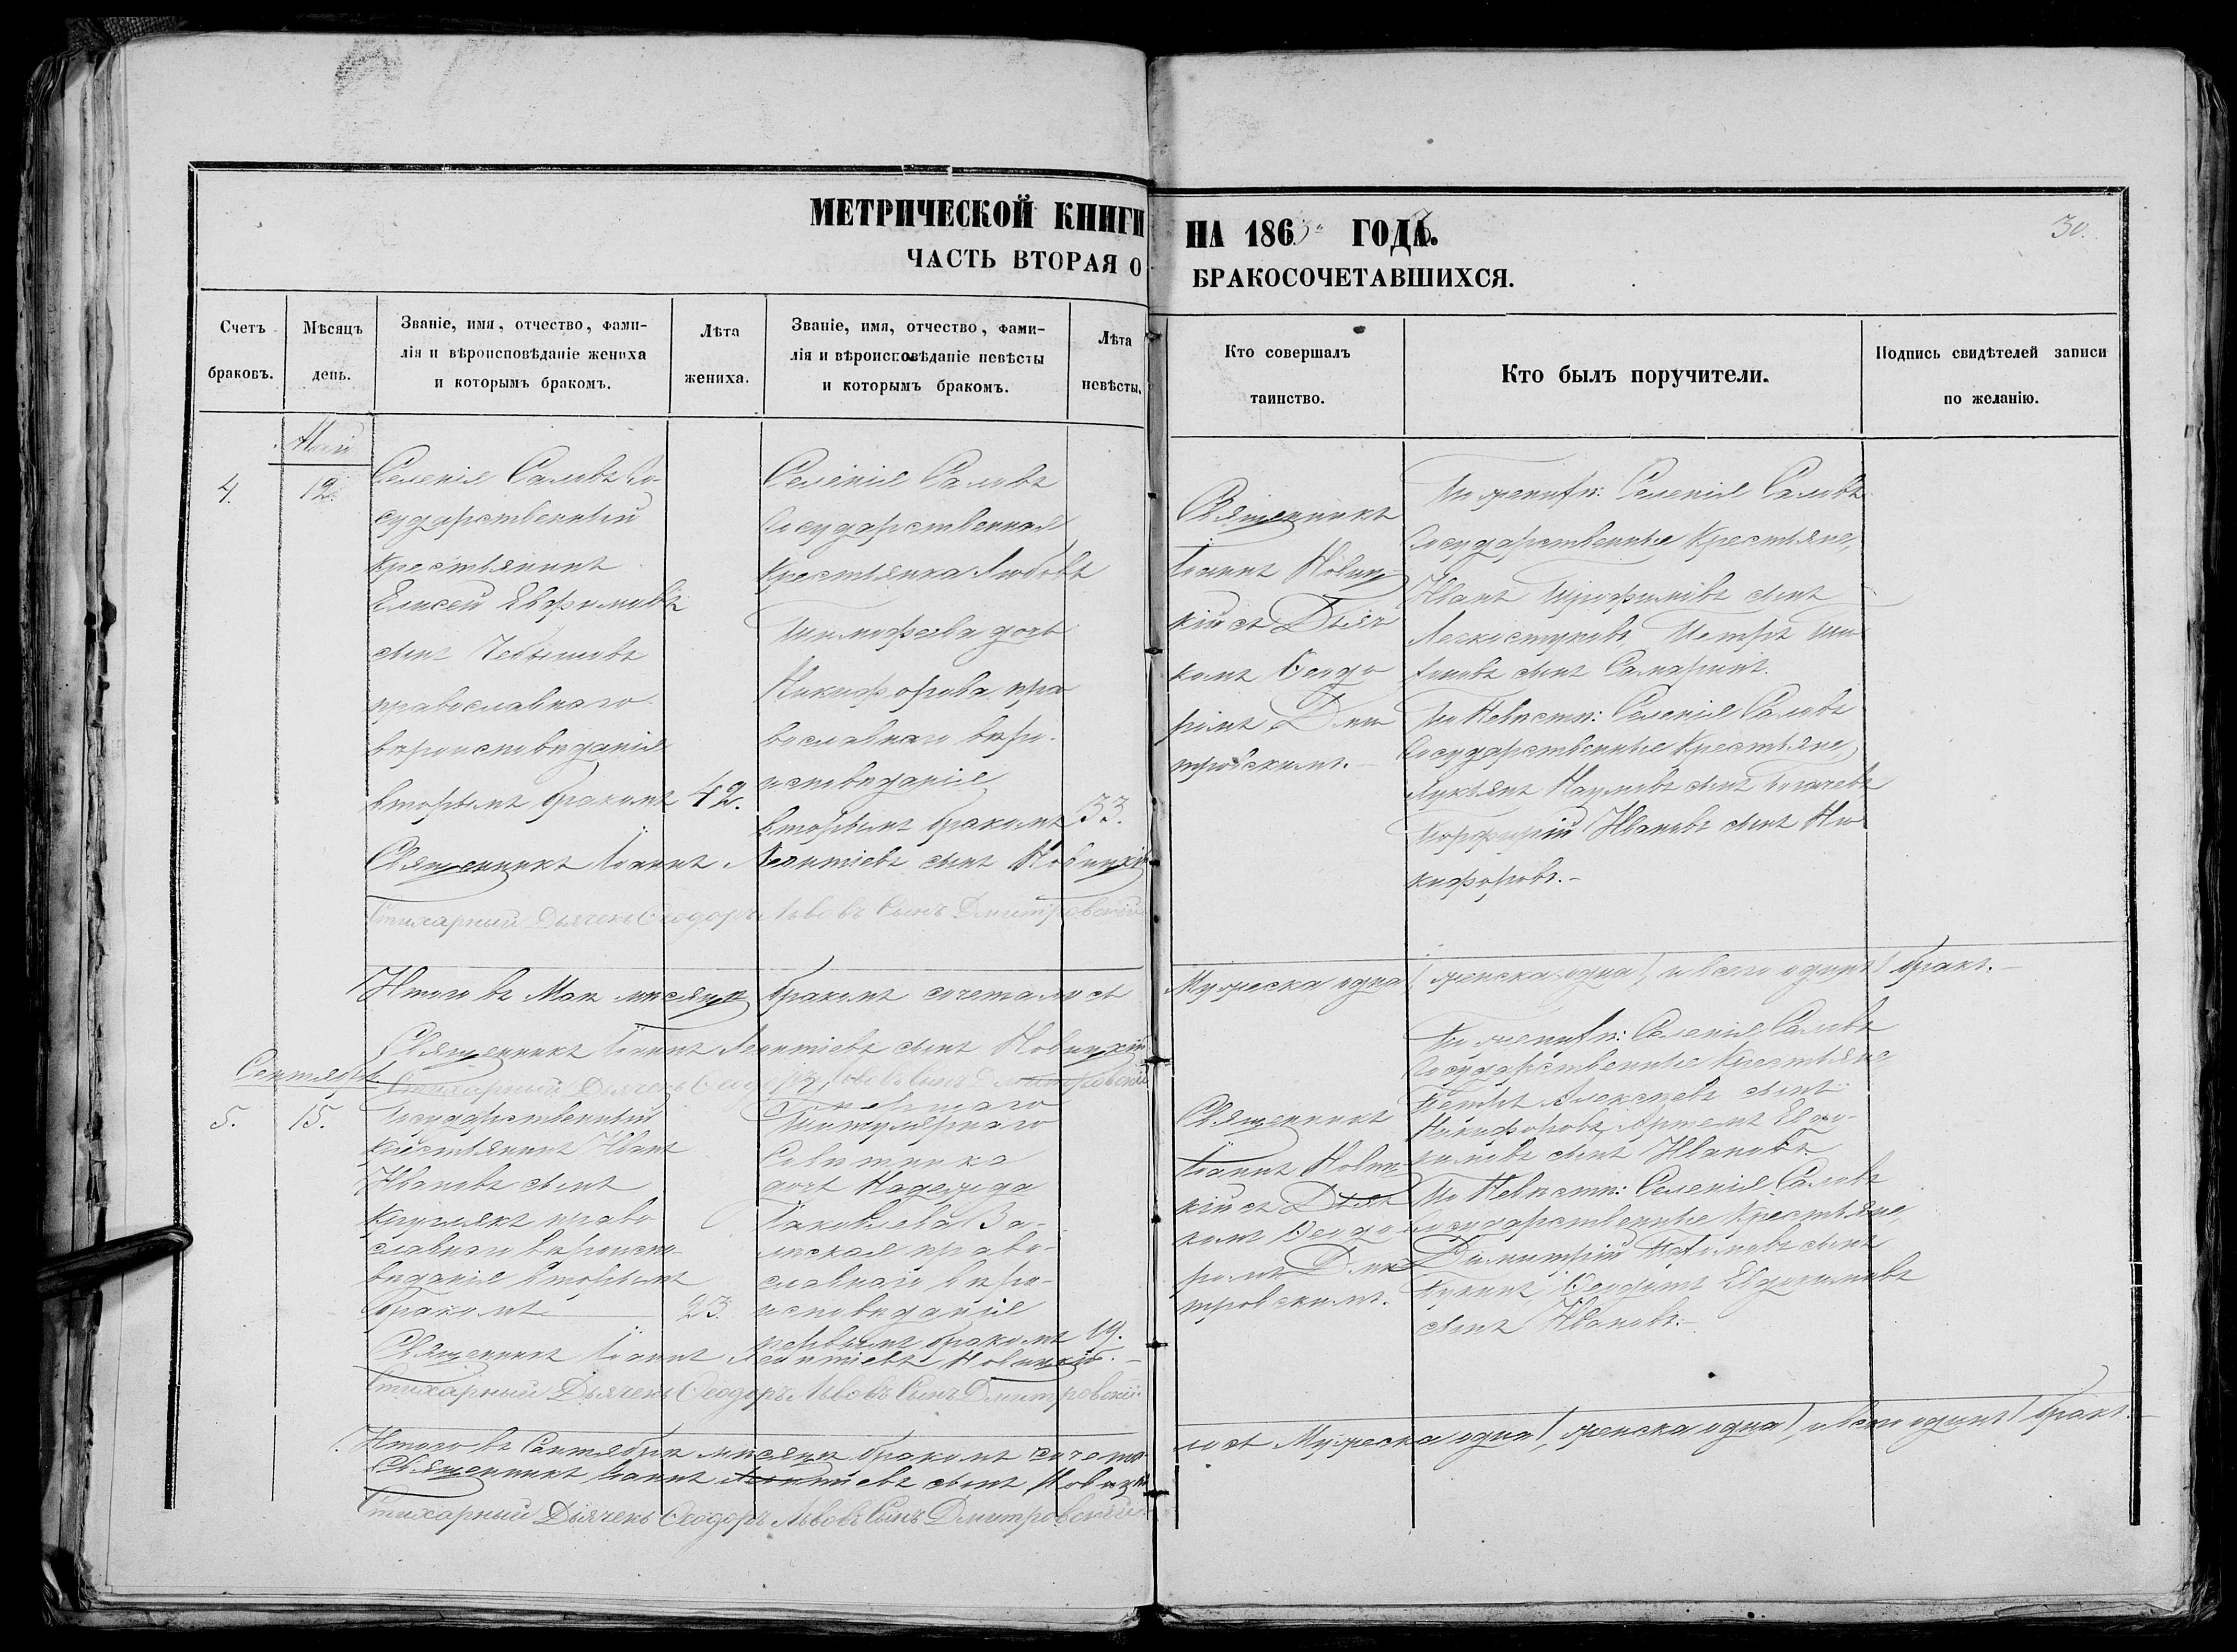 МЕТРИЧЕСКОЙ КНИГИ НА 1863 ГОДА.
30.
ЧАСТЬ ВТОРАЯ О БРАКОСОЧЕТАВШИХСЯ.
Счетъ
браковъ.
Мѣсяцъ
день.
Званіе, имя, отчество, фами-
лія и вѣроисповѣданіе жениха
и которымъ бракомъ.
Лѣта
жениха.
Званіе, имя, отчество, фами-
лія и вѣроисповѣданіе невѣсты
и которымъ бракомъ.
Лѣта
невѣсты.
Кто совершалъ
таинство.
Кто былъ поручители.
Подпись свидѣтелей записи
по желанію.
Май
4.
12.
Селенія Саловъ Го-
сударственный
Крестьянинъ
Елисей Евфимовъ
сынъ Чебышовъ
православнаго
вѣроисповѣданія
вторымъ бракомъ
42.
Селенія Саловъ
Государственная
Крестьянка Любовь
Тимофеева дочь
Никифорова пра
вославнаго вѣро-
исповѣданія
вторымъ бракомъ
33.
Священникъ
Іоаннъ Новиц-
кій съ Дьяч
комъ Ѳеодо
ромъ Дми
тровскимъ.
По женихѣ: Селенія Саловъ
Государственные Крестьяне,
Иванъ Трофимовъ сынъ
Легкоступовъ, Петръ
сынъ Самаринъ.
По Невѣстѣ: Селенія Саловъ
Государственные Крестьяне,
Лукьянъ Наумовъ сынъ
Порфирій Ивановъ сынъ Ни
кифоровъ.-
Священникъ Іоаннъ Леонтіевъ сынъ Новицкій
Стихарный Дьячекъ Ѳеодоръ Львовъ Сынъ Дмитровскій
Итого въ Маѣ мѣсяцѣ бракомъ сочеталось Мужеска одна, женска одна, и всего одинъ бракъ.-
Священникъ Іоаннъ Леонтіевъ сынъ Новицкій
Стихарный Дьячекъ Ѳеодоръ Львовъ Сынъ Дмитровскій
Сентябрь
5.
15.
Государственный
Крестьянинъ Иванъ
Ивановъ сынъ
Кругляхъ право-
славнаго вѣроиспо-
вѣданія вторымъ
бракомъ
23.
Титулярнаго
Совѣтника
дочь Надежда
Яковлева
право-
славнаго вѣро-
исповѣданія
первымъ бракомъ
19.
Священникъ
Іоаннъ Новиц-
кій съ Дьяч
комъ Ѳеодо
ромъ Дми
тровскимъ.
По женихѣ: Селенія Саловъ
Государственные Крестьяне
Петръ Алексѣевъ сынъ
Никифоровъ, Артемъ Евфи-
мовъ сынъ Ивановъ.
По Невѣстѣ: Селенія Саловъ
Государственные Крестьяне,
Димитрій сынъ
Евдокимовъ
сынъ Ивановъ.-
Священникъ Іоаннъ Леонтіевъ Новицкій.-
Стихарный Дьячекъ Ѳеодоръ Львовъ Сынъ Дмитровскій
Итого въ Сентябрѣ мѣсяцѣ бракомъ сочета-лось Мужеска одна, женска одна, и всего одинъ бракъ.
Священникъ Іоаннъ Леонтіевъ сынъ Новицкій
Стихарный Дьячекъ Ѳеодоръ Львовъ Сынъ Дмитровскій